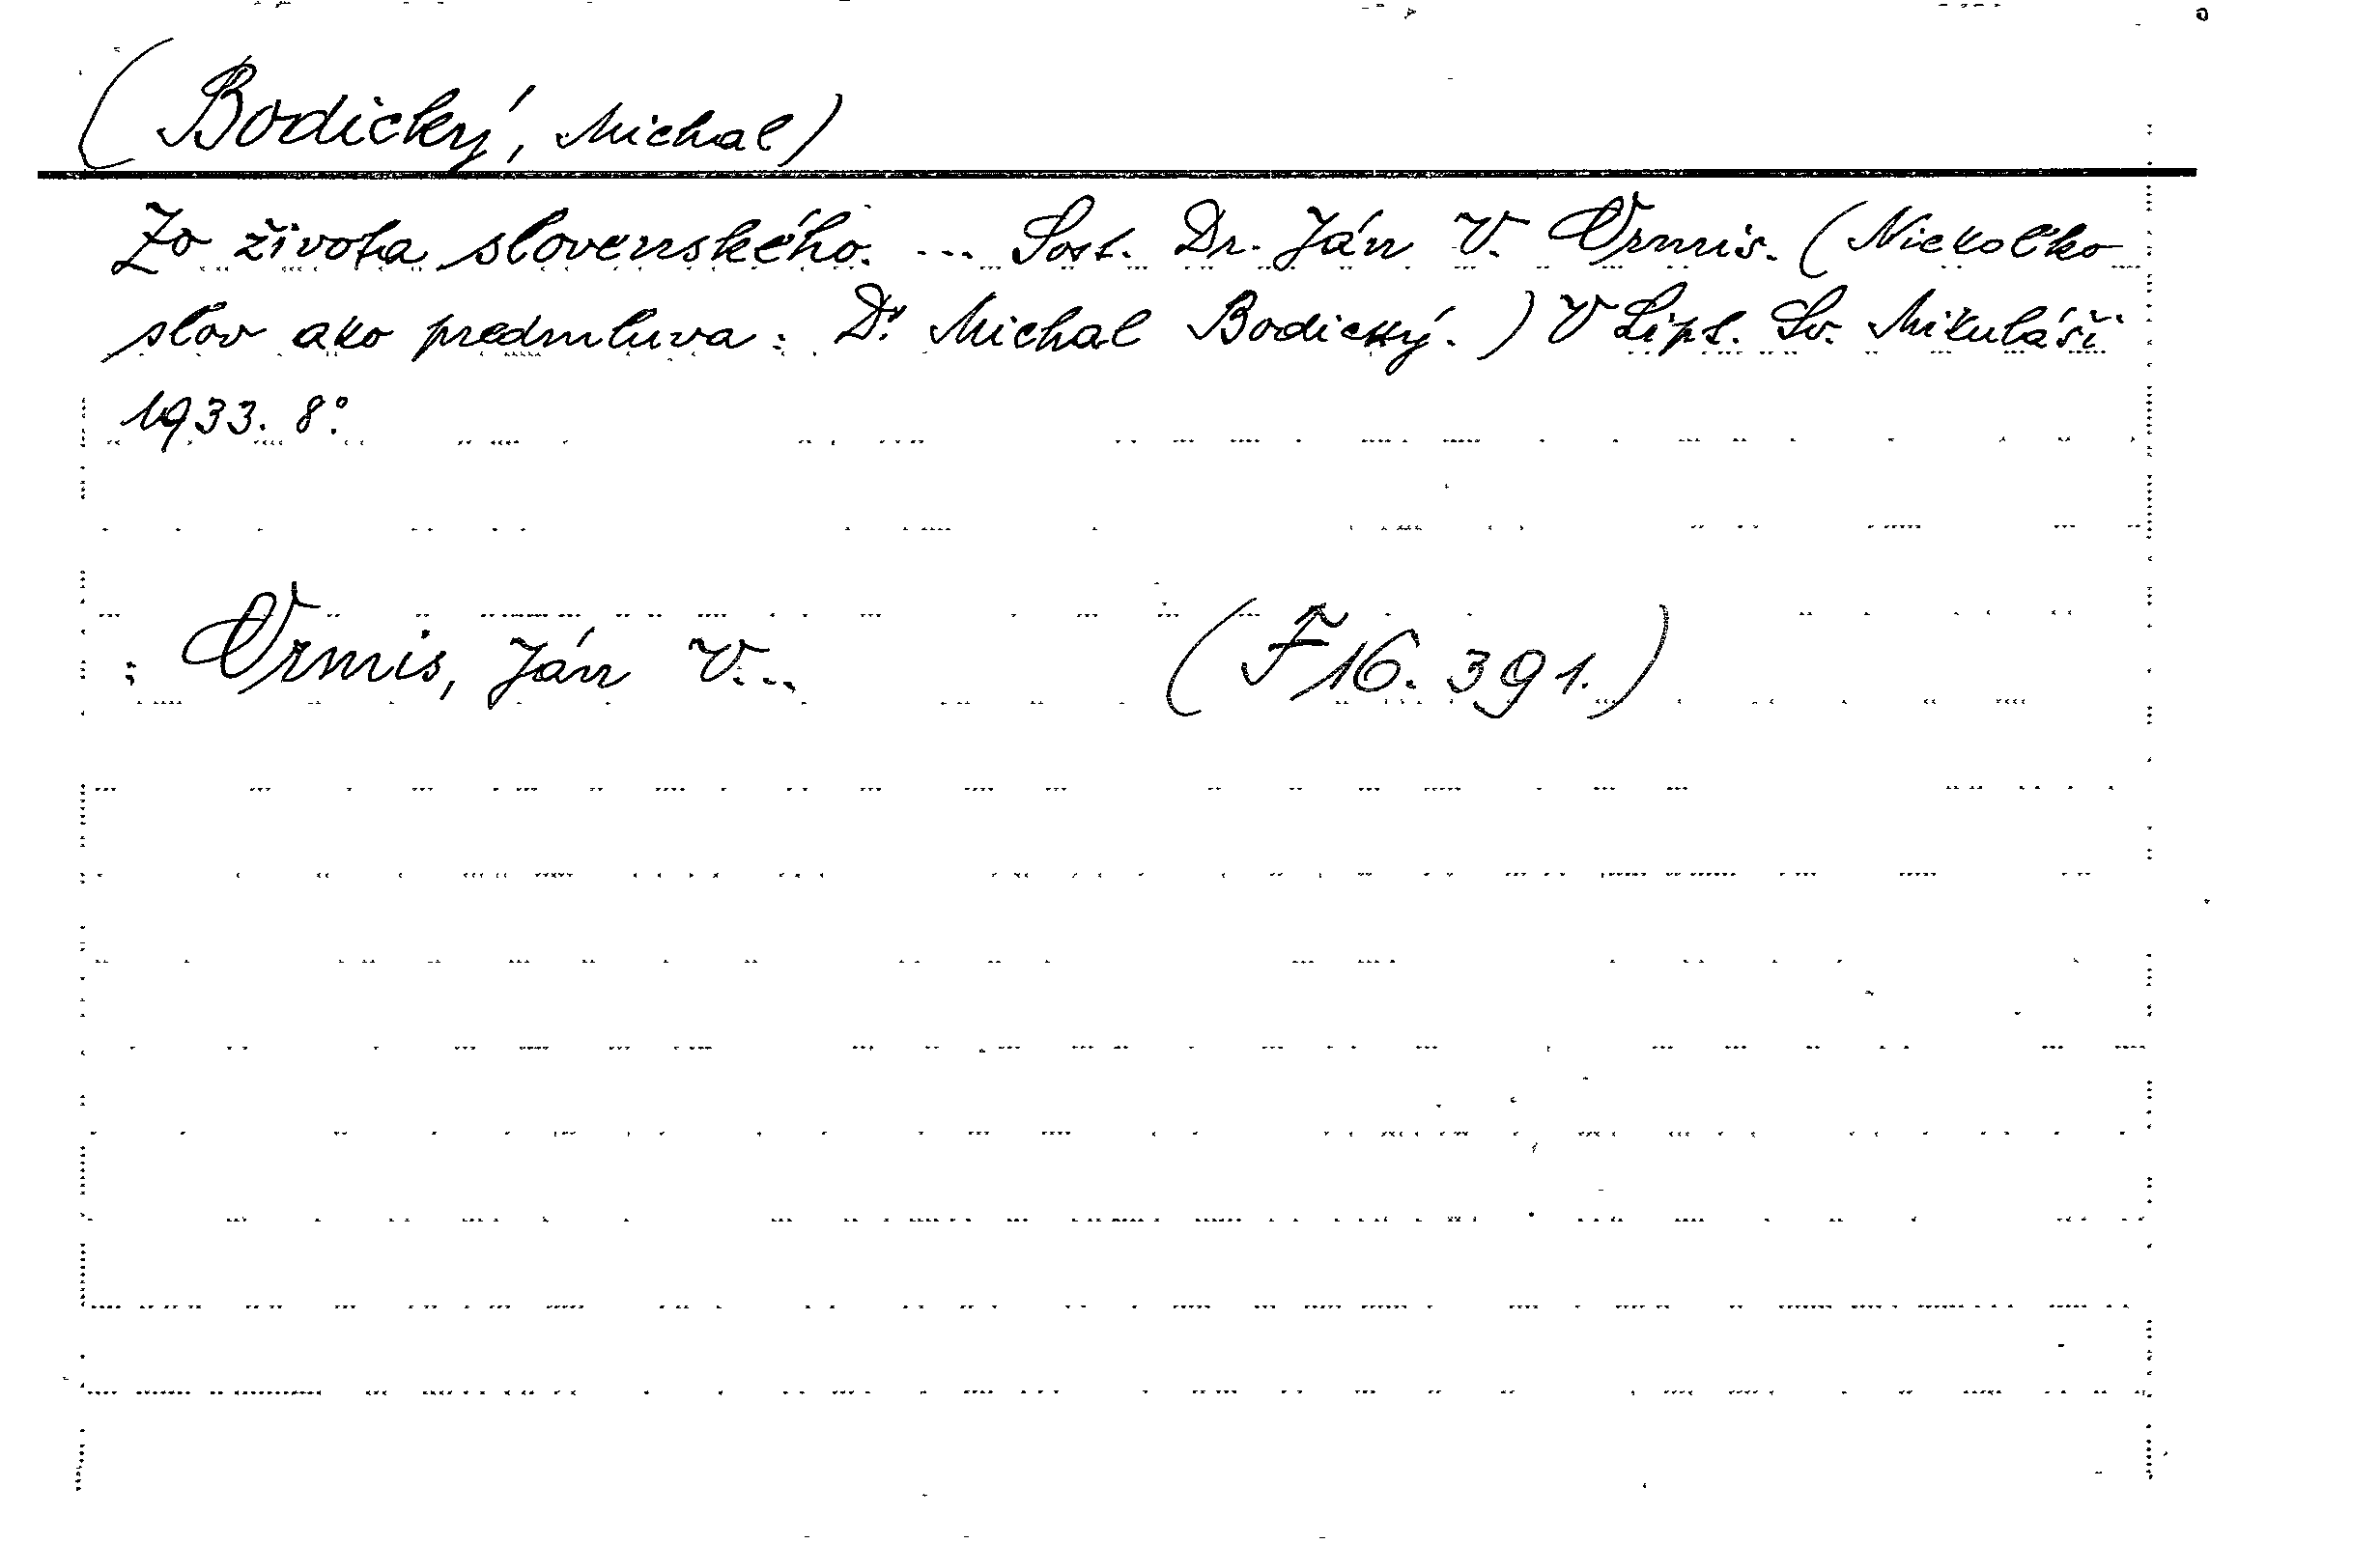 (Bodický, Michal)
Zo života slovenského. ... Sost. Dr. Ján V. Ormis. (Niekoľko
slov ako predmluva: Dr Michal Bodický.) V Lipt. Sv. Mikuláši
1933. 8°.
: Ormis, Ján V... (F 16.391.)